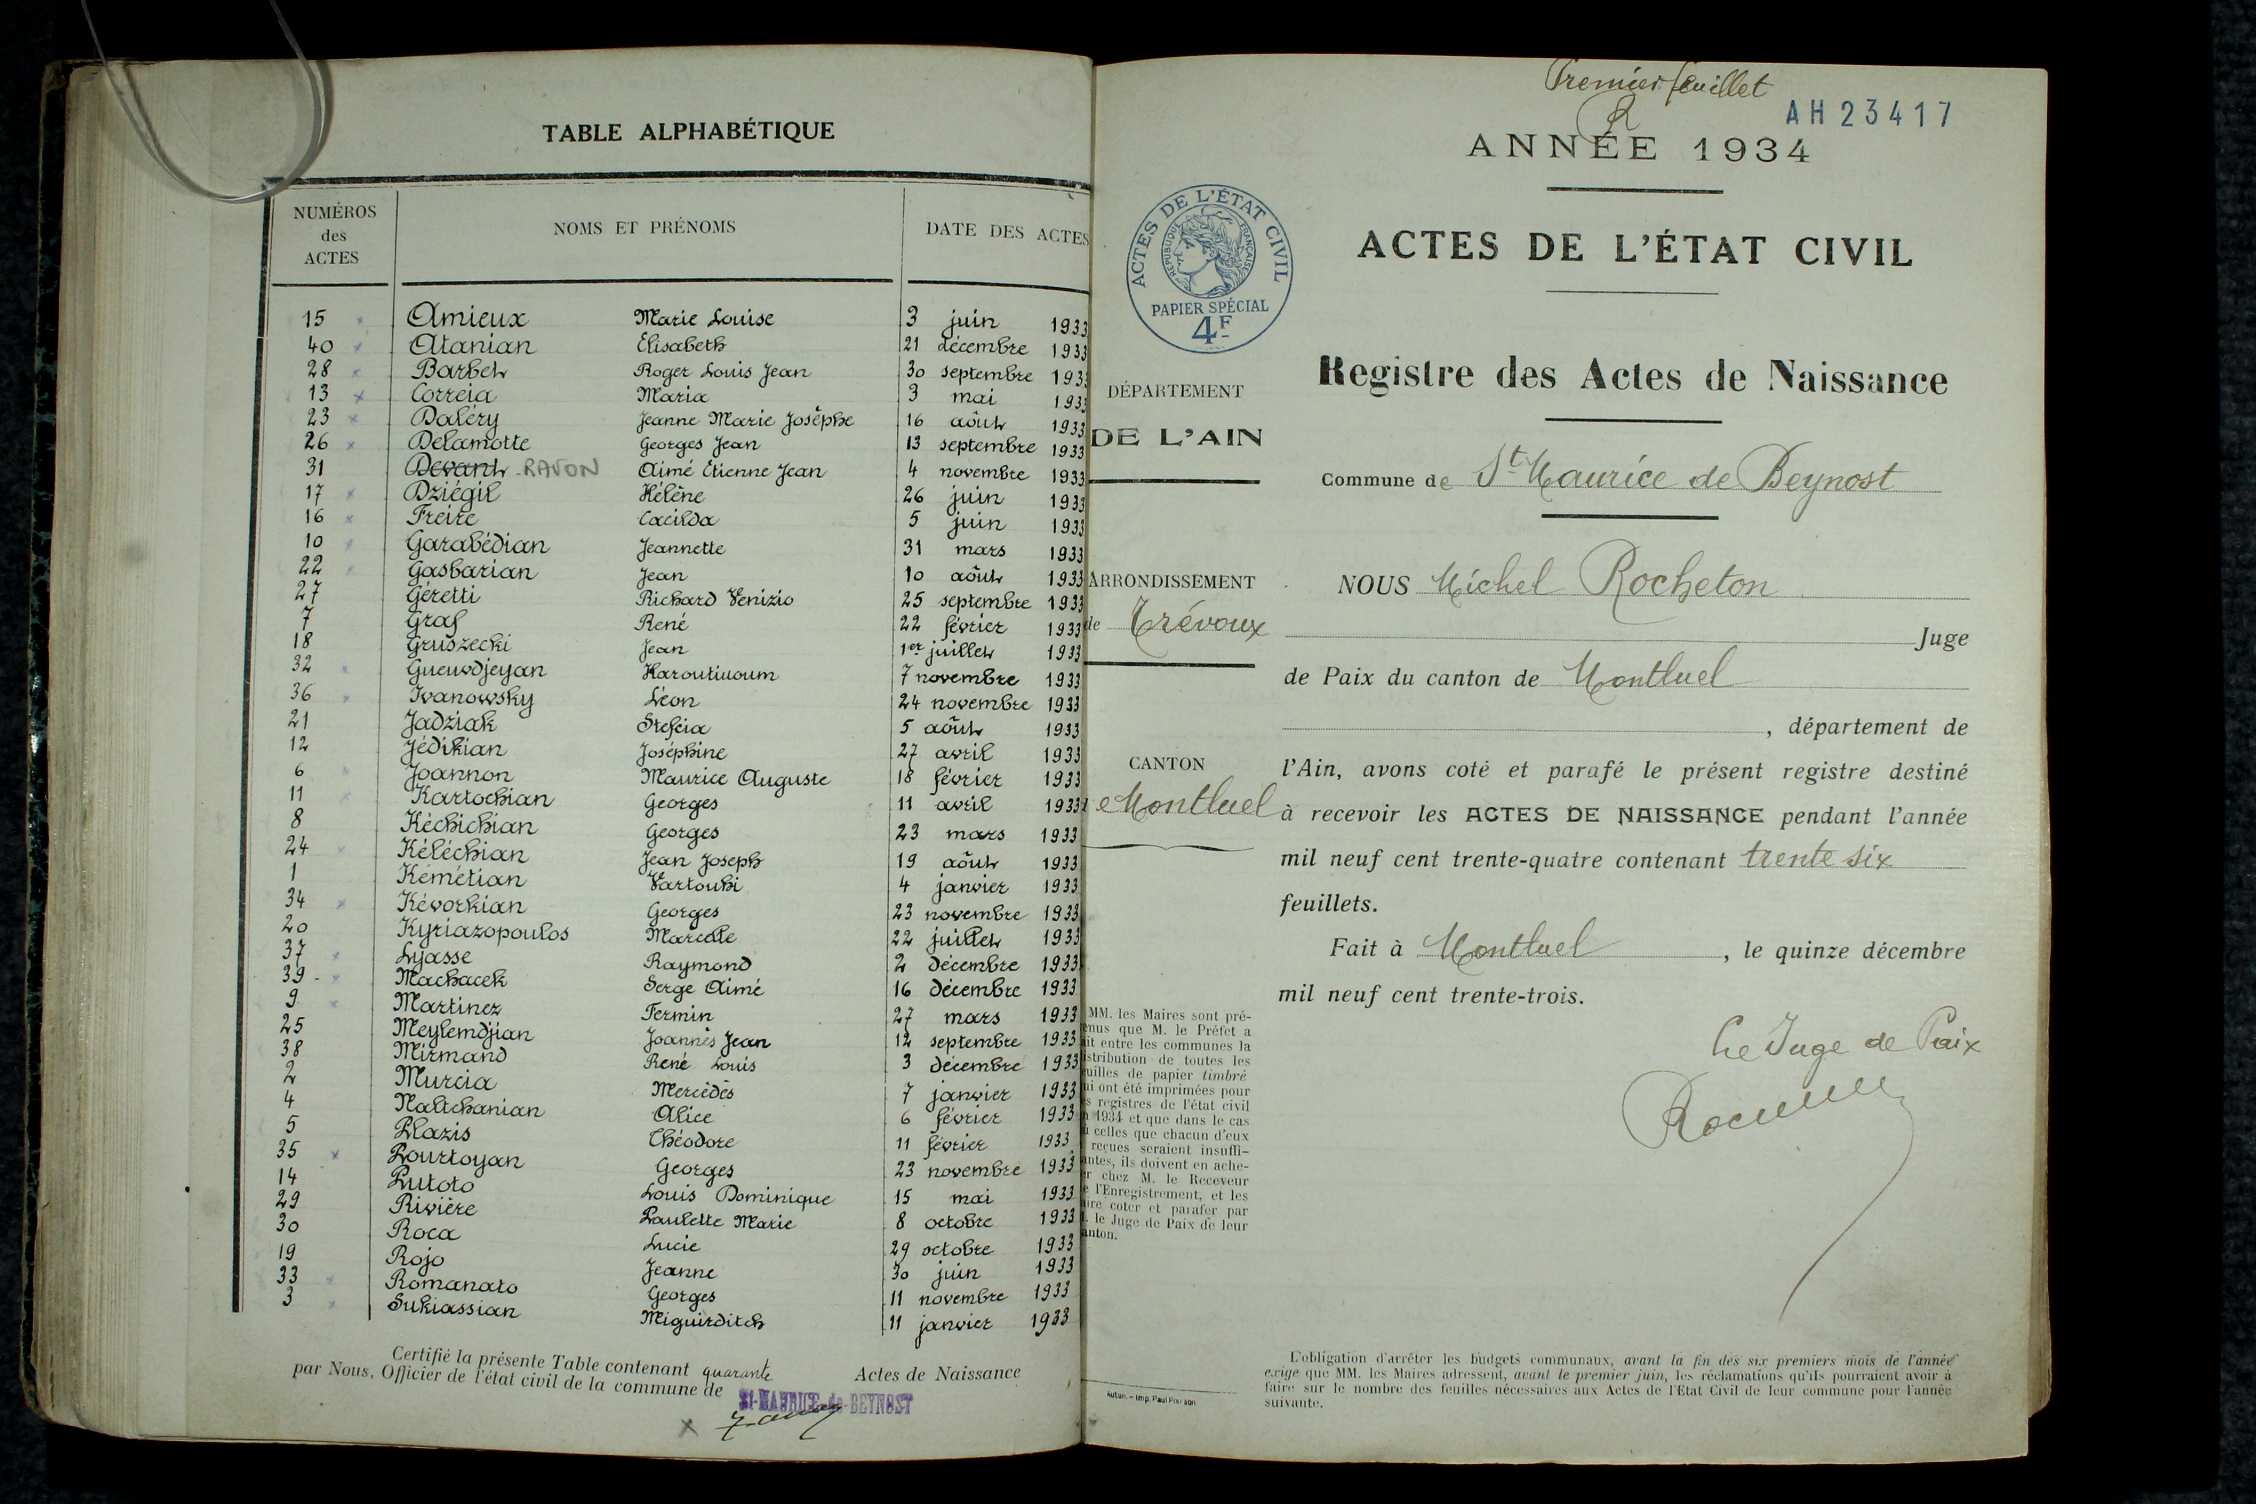 TABLE ALPHABÉTIQUE
NUMÉROS des ACTES
NOMS ET PRÉNOMS
DATE DES ACTES
15 Amieux Marie Louise 3 juin 1933
40 Atanian Elisabeth 21 décembre 1933
28 Barbet Roger Louis Jean 30 septembre 1933
13 Correia Maria 3 mai 1933
23 Daléry Jeanne Marie Josèphe 16 août 1933
26 Delamotte Georges Jean 13 septembre 1933
31 Devant RAVON Aimé Etienne Jean 4 novembre 1933
17 Dziégil Hélène 26 juin 1933
16 Freire Cacilda 5 juin 1933
10 Garabédian Jeannette 31 mars 1933
22 Gasbarian Jean 10 août 1933
27 Géretti Richard Venizio 25 septembre 1933
7 Graf René 22 février 1933
18 Gruszecki Jean 1er juillet 1933
32 Gueuvdjeyan Haroutiuoum 7 novembre 1933
36 Ivanowsky Léon 24 novembre 1933
21 Jadziak Stefcia 5 août 1933
12 Jédikian Joséphine 27 avril 1933
6 Joannon Maurice Auguste 18 février 1933
11 Kartochian Georges 11 avril 1933
8 Kéchichian Georges 23 mars 1933
24 Kéléchian Jean Joseph 19 août 1933
1 Kémétian Vartouhi 4 janvier 1933
34 Kévorkian Georges 23 novembre 1933
20 Kyriazopoulos Marcelle 22 juillet 1933
37 Lyasse Raymond 2 décembre 1933
39 Machacek Serge Aimé 16 décembre 1933
9 Martinez Fermin 27 mars 1933
25 Meylemdjian Joannès Jean 12 septembre 1933
38 Mirmand René Louis 3 décembre 1933
2 Murcia Mercédès 7 janvier 1933
4 Naltchanian Alice 6 février 1933
5 Plazis Théodore 11 février 1933
35 Pourtoyan Georges 23 novembre 1933
14 Putoto Louis Dominique 15 mai 1933
29 Rivière Paulette Marie 8 octobre 1933
30 Roca Lucie 29 octobre 1933
19 Rojo Jeanne 30 juin 1933
33 Romanato Georges 11 novembre 1933
3 Sukiassian Miguirditch 11 janvier 1933
Certifié la présente Table contenant quarante Actes de Naissance
par Nous, Officier de l'état civil de la commune de
St-MAURICE-de-BEYNOST
Premier feuillet
AH 23417
ANNÉE 1934
ACTES DE L'ÉTAT CIVIL
RÉPUBLIQUE FRANÇAISE
PAPIER SPÉCIAL
4F
ACTES DE L'ÉTAT CIVIL
Registre des Actes de Naissance
DÉPARTEMENT
DE L'AIN
Commune de St Maurice de Beynost
ARRONDISSEMENT
de Trévoux
NOUS Michel Rocheton
Juge
de Paix du canton de Montluel
, département de
CANTON
e Montluel
l'Ain, avons coté et parafé le présent registre destiné
à recevoir les ACTES DE NAISSANCE pendant l'année
mil neuf cent trente-quatre contenant trente six
feuillets.
Fait à Montluel, le quinze décembre
mil neuf cent trente-trois.
Le Juge de Paix
MM. les Maires sont pré-
enus que M. le Préfet a
ait entre les communes la
istribution de toutes les
uilles de papier timbré
ui ont été imprimées pour
es registres de l'état civil
1934 et que dans le cas
ù celles que chacun d'eux
reçues seraient insuffi-
antes, ils doivent en ache-
er chez M. le Receveur
e l'Enregistrement, et les
aire coter et parafer par
. le Juge de Paix de leur
anton.
L'obligation d'arrêter les budgets communaux, avant la fin des six premiers mois de l'année
exige que MM. les Maires adressent, avant le premier juin, les réclamations qu'ils pourraient avoir à
faire sur le nombre des feuilles nécessaires aux Actes de l'Etat Civil de leur commune pour l'année
suivante.
Autun. - Imp. Paul